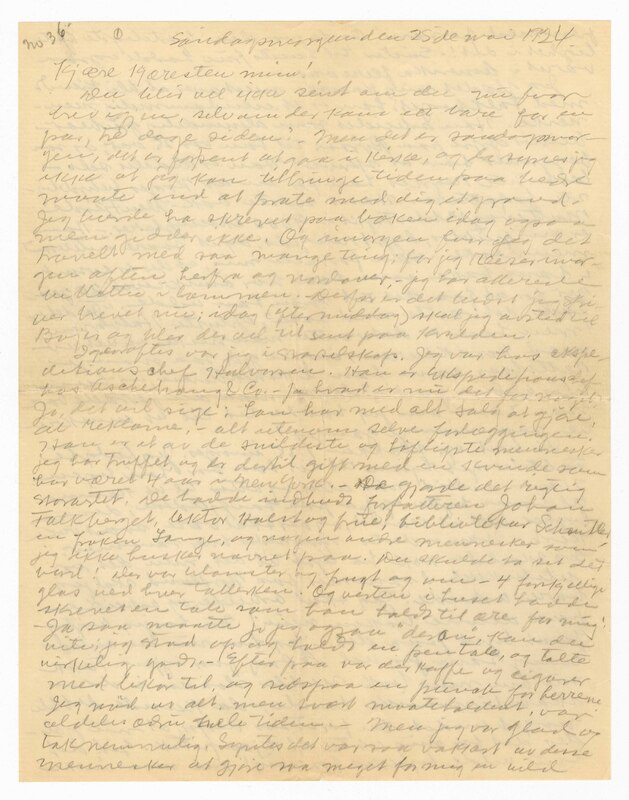 no 36
1
Søndagmorgen den 25de mai 1924
Kjære Kjæresten min!
Du blir vel ikke sint om du nu faar
brev igjen, selv om der kom et bare for en
par, tre dage siden? - Men det er søndagsmor-
gen, det er for sent at gaa i kirke, og da synes jeg
ikke at jeg kan tilbringe tiden paa bedre
maate end at prate med dig et grand.
Jeg burde ha skrevet paa boken idag ogsaa -
men gidder ikke. Og imorgen har jeg det
travelt med saa mange ting; for jeg reiser imor-
gen aften herfra og nordover, - jeg har allerede
billetten i lommen. Derfor er det bedst jeg skri-
ver brevet nu; idag (eftermiddag) skal jeg avsted til
og blir der vel til sent paa kvelden.
Igaaraftes var jeg i stort selskap. Jeg var hos ekspe-
ditionschef Halvorsen. Han er ekspeditionschef
hos Aschehoug & Co. - Ja hvad er nu det for noget?
Jo, det vil sige: han har med alt salg at gjøre,
al reklame, - alt utenom selve forlæggingen.
Han er et av de snildeste og høfligste mennesker
jeg har truffet og er dertil gift med en kvinde som
har været 4 aar i New York. - De gjorde det rigtig
storartet. De hadde indbudt forfatteren Johan
Falkberget, lektor Halst og frue, bibliotekar
en frøken Lange, og nogen andre mennesker som
jeg ikke husker navnet paa. Du skulde ha set det
bord! Der var blomster og frugt og vin - 4 forskjellige
glas ved hver tallerken. Og verten i huset hadde
skrevet en tale som han holdt til ære for mig!
- Ja saa maatte jo jeg ogsaa "deran", kan du
vite; jeg stod op og holdt en pen tale, og talte
virkelig godt. - Efter paa var der kaffe og cigarer
med likør til, og ned paa en for herrene
Jeg nød vi alt, men svært maateholdent, var
aldeles ædru hele tiden. - Men jeg var glad og
taknemmelig. Syntes det var saa vakkert av disse
mennesker at gjøre saa meget for mig en vild